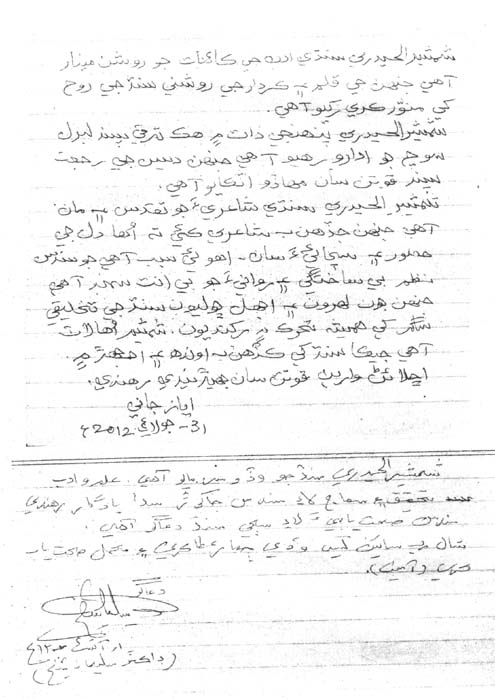 شمشيرالحيدري سنڌي ادب جي ڪائنات جو روشن مينار
آهي جنهن جي قلم ۽ ڪردار جي روشني سنڌ جي روح
کي منور ڪري رکيو آهي.
شمشيرالحيدري پنهنجي ذات ۾ هڪ ترقي پسند لبرل
سوچ جو ادارو رهيو آهي جنهن ديس جي رجعت
پسند قوتن سان مهاڏو اٽڪايو آهي.
شمشيرالحيدري سنڌي شاعريءَ جو تقدس ۽ مان
آهي جنهن جڏهن به شاعري ڪئي ته اُها دل جي
حضور ۽ سچائيءَ سان. اهو ئي سبب آهي جو سندس
نظم بي ساختگي ۽ روانيءَ جو بي انت سمنڊ آهي
جنهن جون لهرون ۽ ڇوليون سنڌ جي تخليقي
کي هميشه متحرڪ ۾ رکنديون. شمشير اُهالات
آهي جيڪا سنڌ کي ڪڏهن به اونده ۽ اجهڙ ۾
وارين قوتن سان جنگ رهندي.
اياز جاني
31- جولاءِ 2012ع
شمشيرالحيدري سنڌ جو وڏو سرمايو آهي. علم و ادب
تحقيق ۽ سماج لاءِ سندس جاکوڙ سدا يادگار رهندي
سندس صحت يابي لاءِ سڄي سنڌ دعاگو آهي.
شال رب سائين کيس وڏي ڄمار عطا ڪري ۽ مڪمل صحت ياب
ڪري (آمين).
دعاگو
(ڊاڪٽر سليمان شيخ)